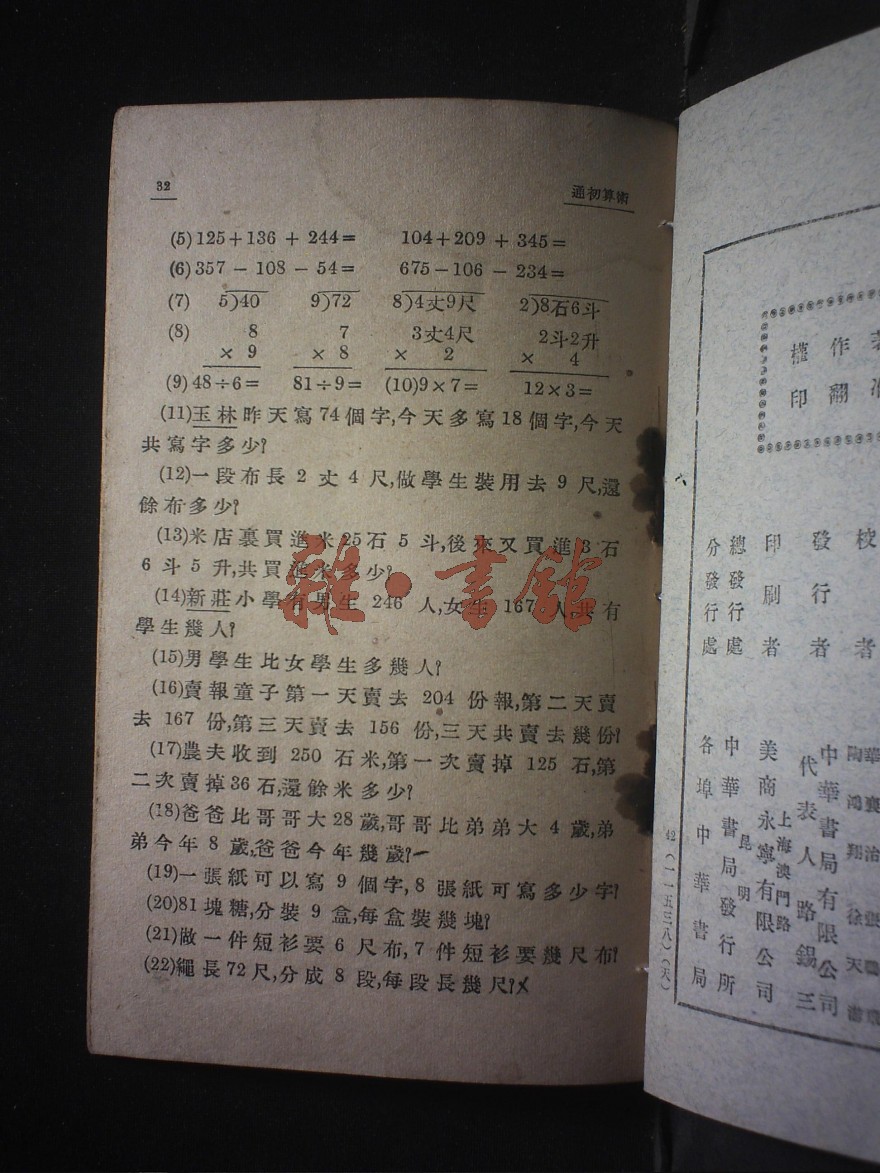 32
通初算術
(5) 125+136 + 244= 104+209 + 345=
(6) 357 - 108 - 54= 675-106 - 234=
(7) 5)40 9)72 8)4丈9尺 2)8石6斗
(8) 8 7 3丈4尺 2斗2升
× 9 × 8 × 2 × 4
(9) 48÷6= 81÷9= (10)9×7= 12×3=
(11)玉林昨天寫74個字,今天多寫18個字,今天
共寫字多少?
(12)一段布長 2 丈 4 尺,做學生裝用去 9 尺,還
餘布多少?
(13)米店裏買進米25石 5 斗,後來又買進 3 石
6 斗 5 升,共買進米多少?
(14)新莊小學有男生 246 人,女生 167 人,共有
學生幾人?
(15)男學生比女學生多幾人?
(16)賣報童子第一天賣去 204 份報,第二天賣
去 167 份,第三天賣去 156 份,三天共賣去幾份?
(17)農夫收到 250 石米,第一次賣掉 125 石,第
二次賣掉36石,還餘米多少?
(18)爸爸比哥哥大28歲,哥哥比弟弟大 4 歲,弟
弟今年 8 歲,爸爸今年幾歲?
(19)一張紙可以寫 9 個字,8 張紙可寫多少字?
(20)81塊糖,分裝 9 盒,每盒裝幾塊?
(21)做一件短衫要 6 尺布,7 件短衫要幾尺布?
(22)繩長72尺,分成 8 段,每段長幾尺?
雜·書館
著
作
權
翻
印
校 者
發行者
印刷者
總發行處
分發行處
中華書局有限公司
代表人 路錫三
上海澳門路
美商永寧有限公司
昆明
中華書局發行所
各埠中華書局
42(一一五三八)(天)